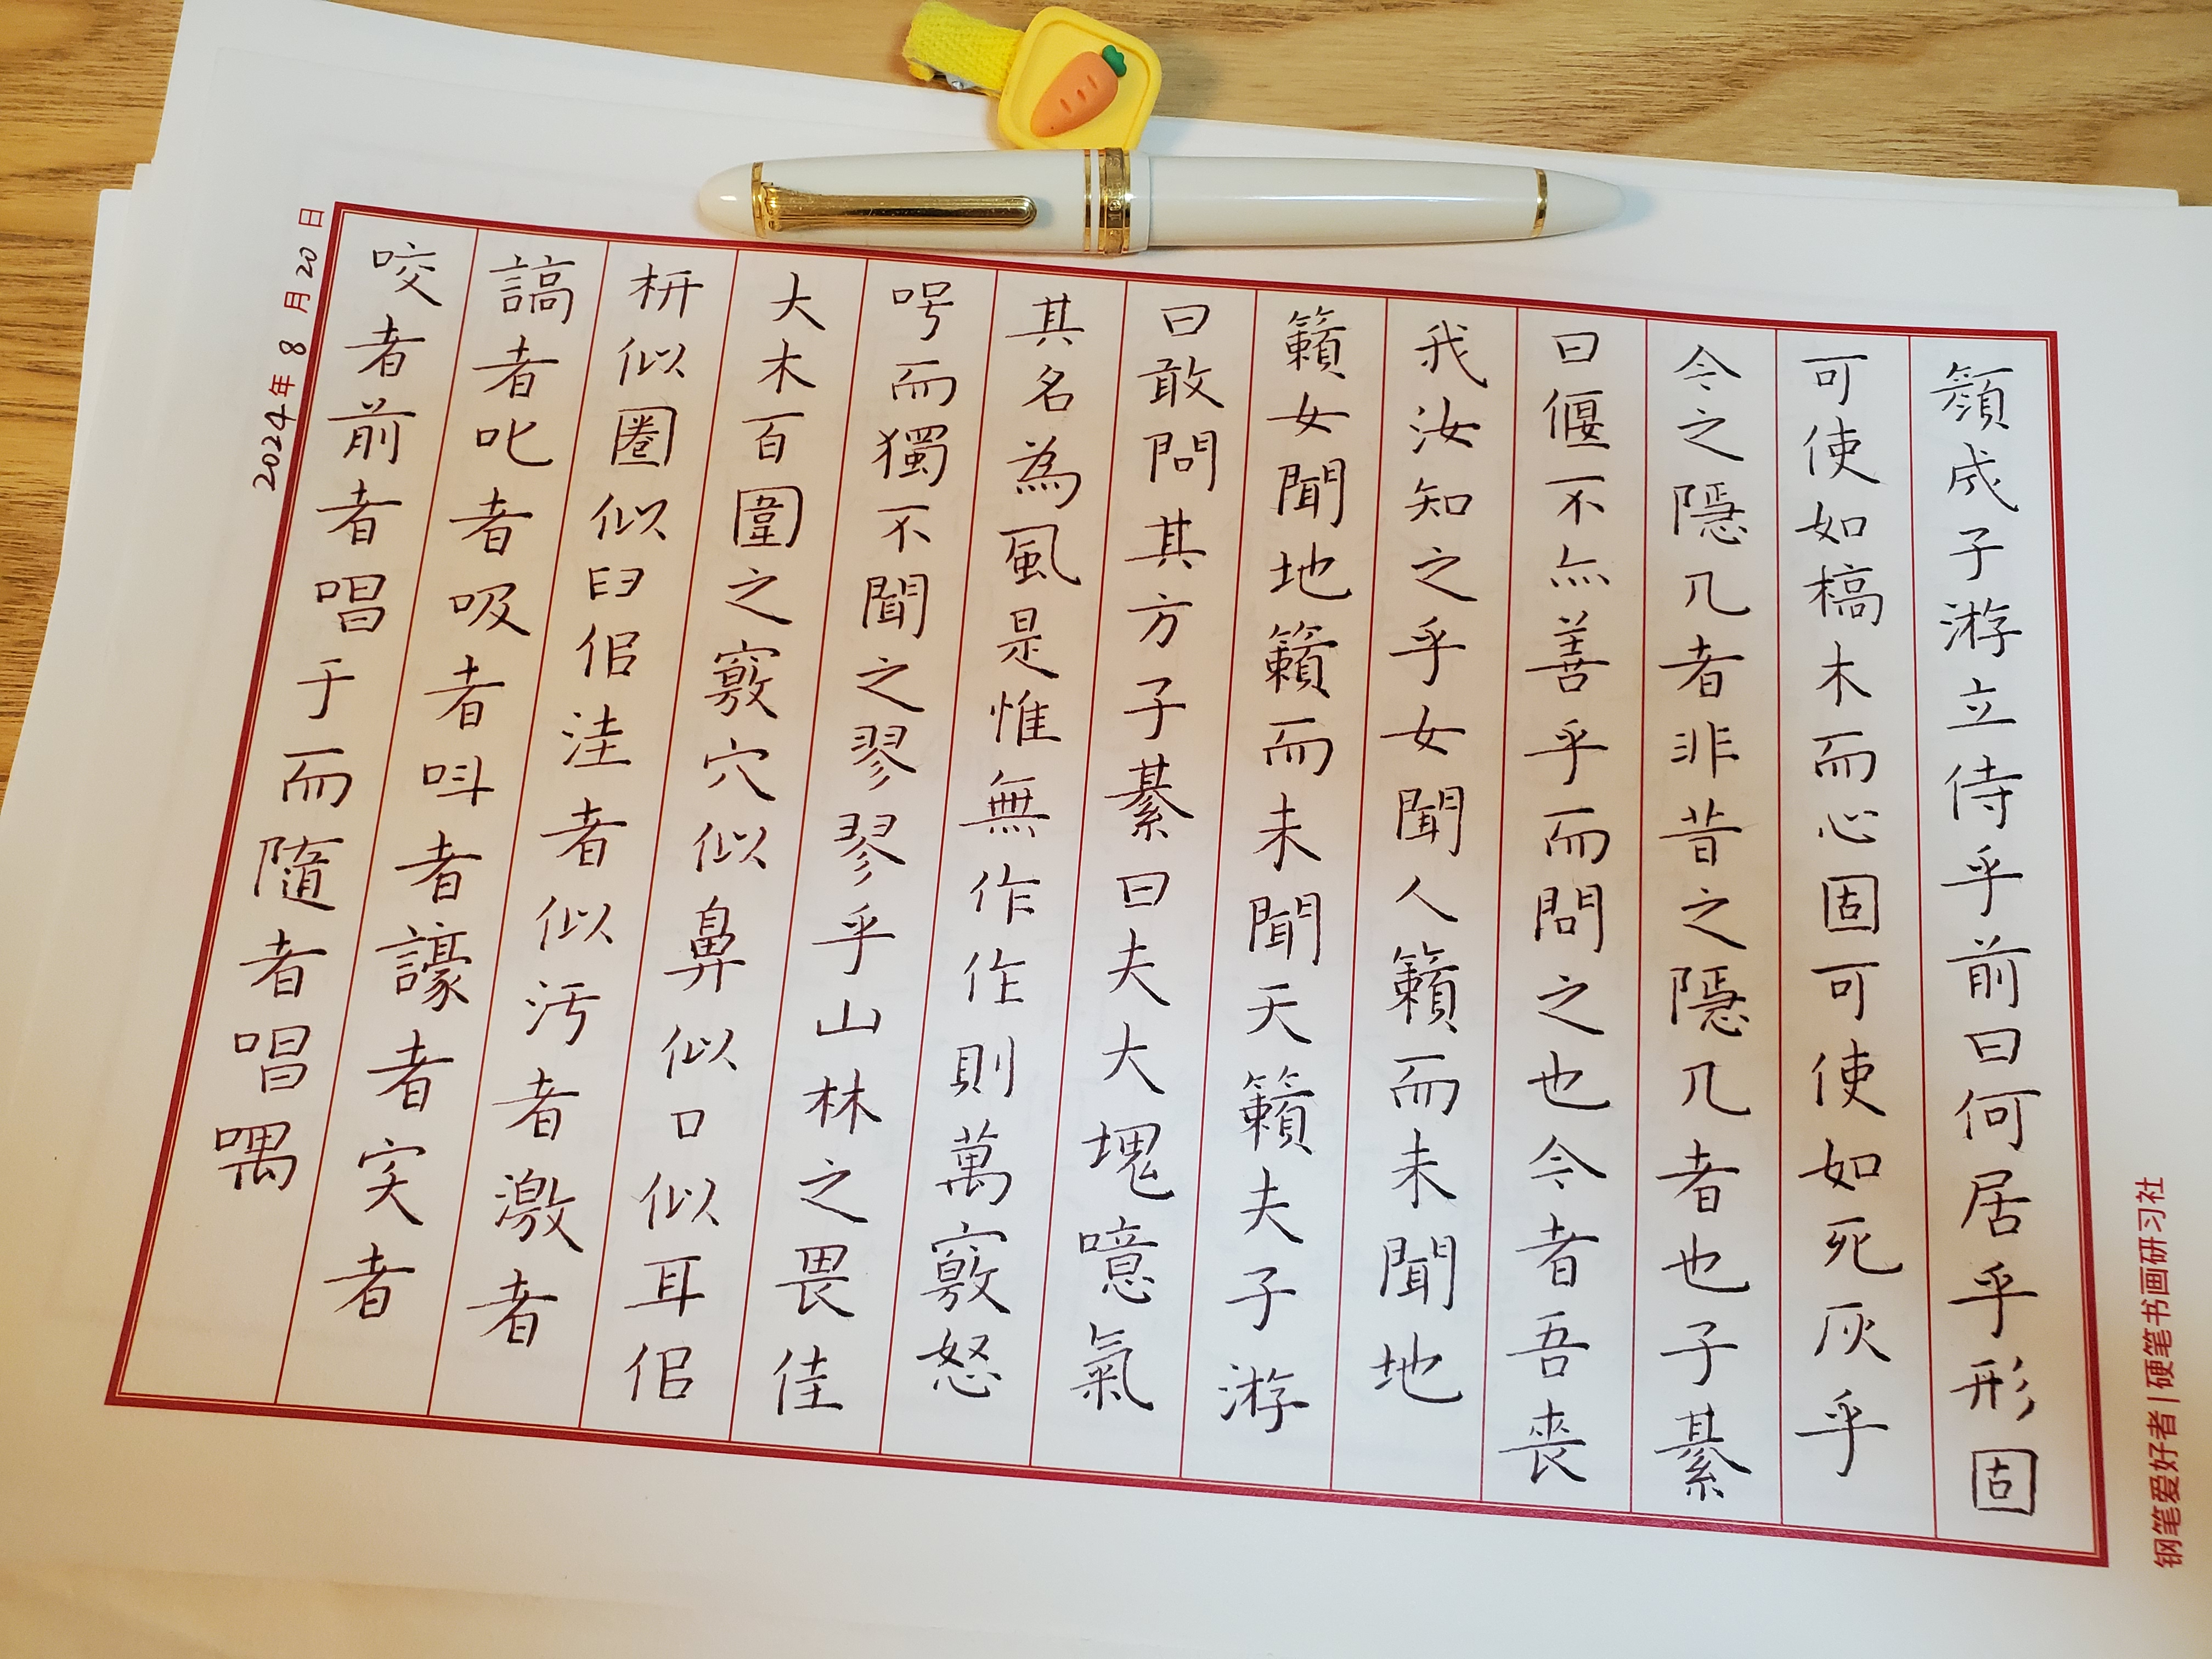 顏成子游立侍乎前曰何居乎形固
可使如槁木而心固可使如死灰乎
今之隱几者非昔之隱几者也子綦
曰偃不亦善乎而問之也今者吾喪
我汝知之乎女聞人籟而未聞地
籟女聞地籟而未聞天籟夫子游
曰敢問其方子綦曰夫大塊噫氣
其名為風是惟無作作則萬竅怒
呺而獨不聞之翏翏乎山林之畏佳
大木百圍之竅穴似鼻似口似耳似
枅似圈似臼似洼者似污者激者
謞者叱者吸者叫者譹者宎者
咬者前者唱于而隨者唱喁
2024年8月20日
钢笔爱好者|硬笔书画研习社